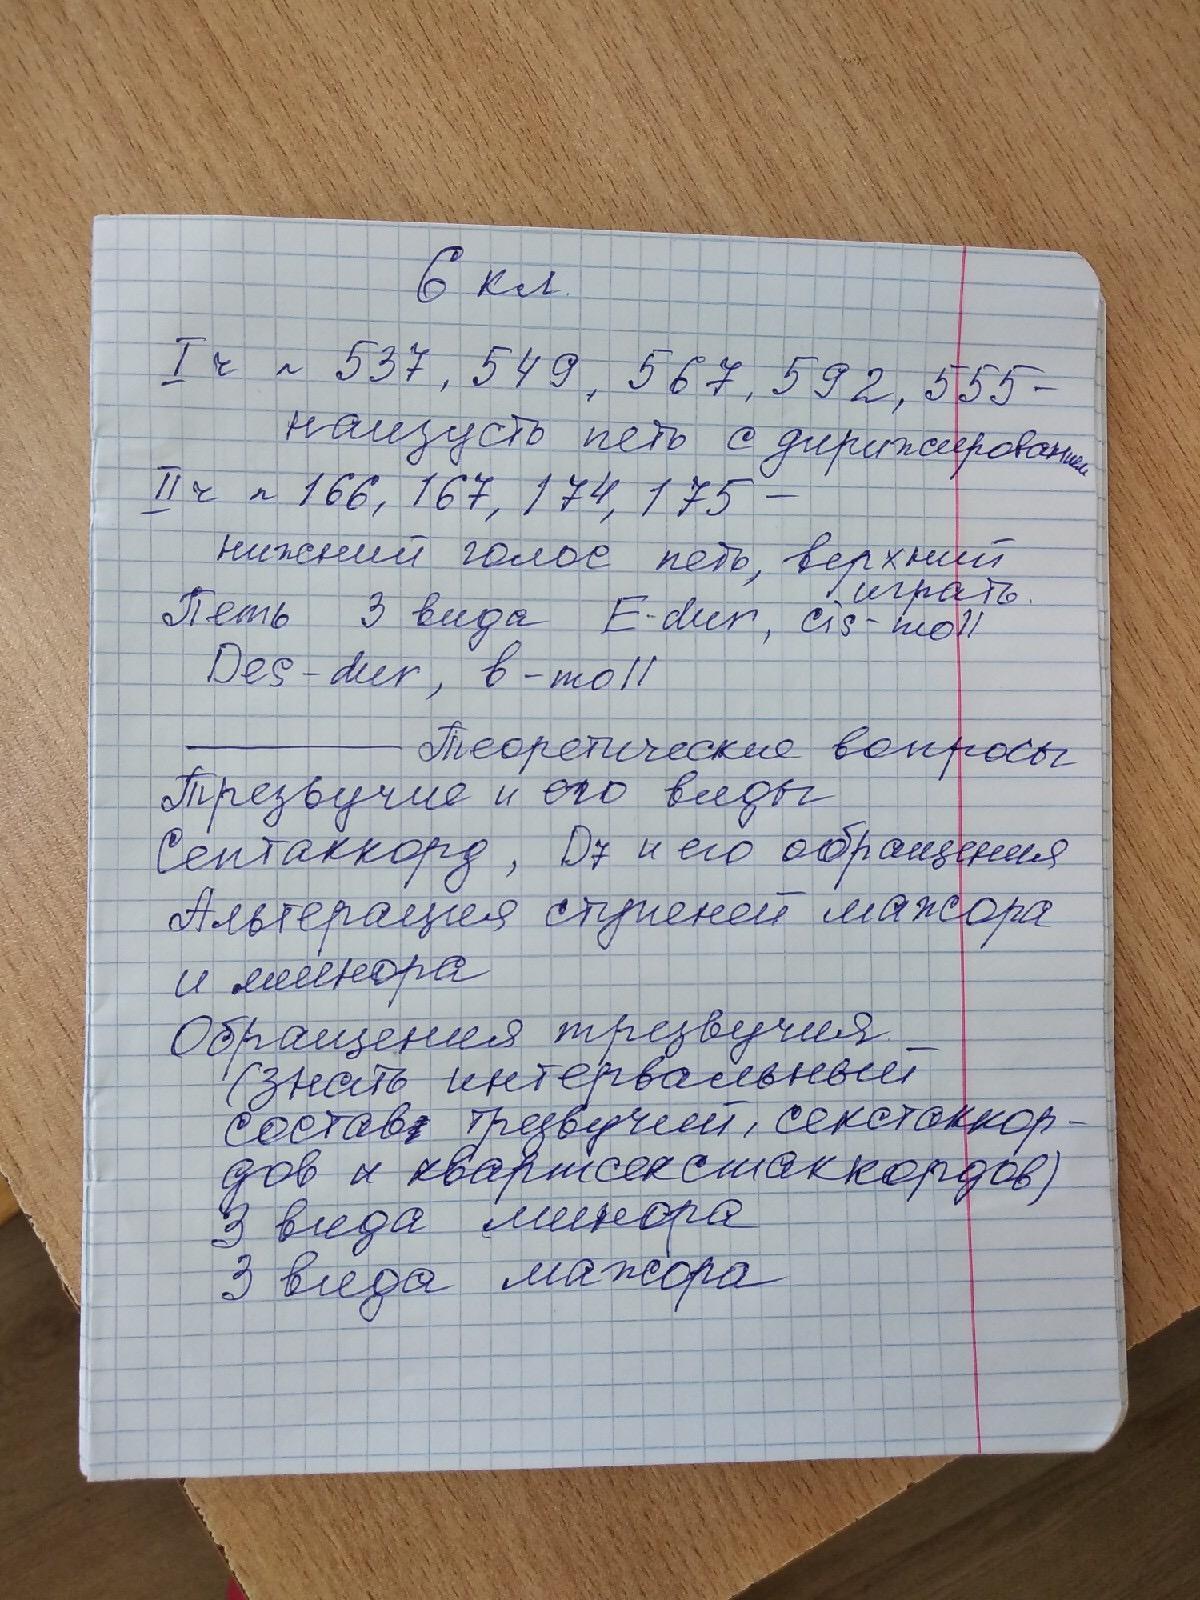 6 кл.
I ч ~ 537, 549, 567, 592, 555 -
наизусть петь с дирижированием
II ч ~ 166, 167, 174, 175 -
нижний голос петь, верхний
играть.
Петь 3 вида E-dur, cis-moll
Des-dur, b-moll
Теоретические вопросы
Трезвучие и его виды
Септаккорд, D7 и его обращения
Альтерация ступеней мажора
и минора
Обращения трезвучия
(Знать интервальный
состав трезвучий, секстаккор-
дов и квартсекстаккордов)
3 вида минора
3 вида мажора